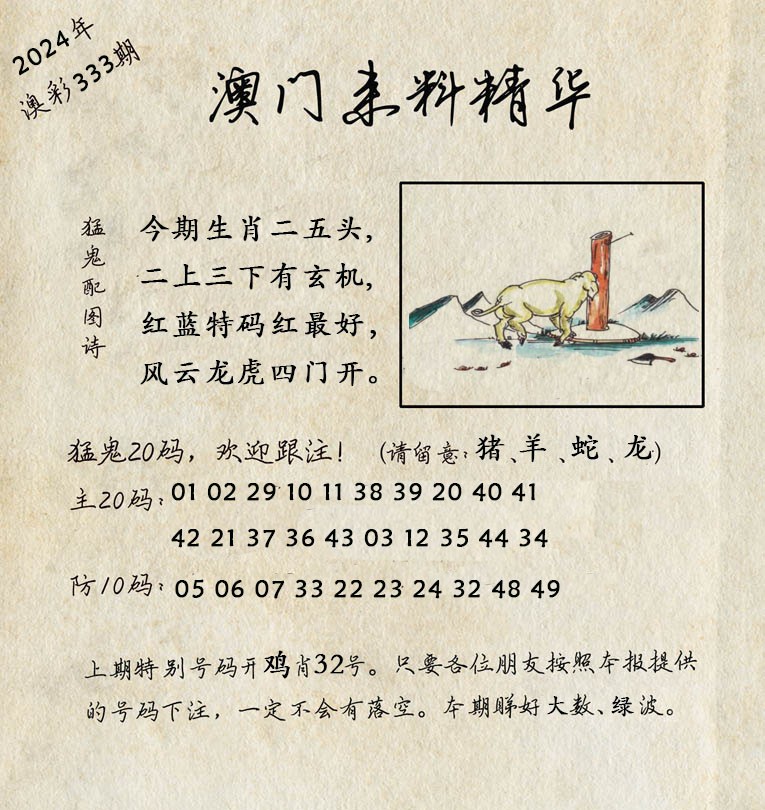 2024年
澳彩333期
澳门来料精华
猛鬼配图诗
今期生肖二五头,
二上三下有玄机,
红蓝特码红最好,
风云龙虎四门开。
猛鬼20码,欢迎跟注! (请留意:猪、羊、蛇、龙)
主20码: 01 02 29 10 11 38 39 20 40 41
42 21 37 36 43 03 12 35 44 34
防10码: 05 06 07 33 22 23 24 32 48 49
上期特别号码开鸡肖32号。只要各位朋友按照本报提供
的号码下注,一定不会有落空。本期睇好大数、绿波。